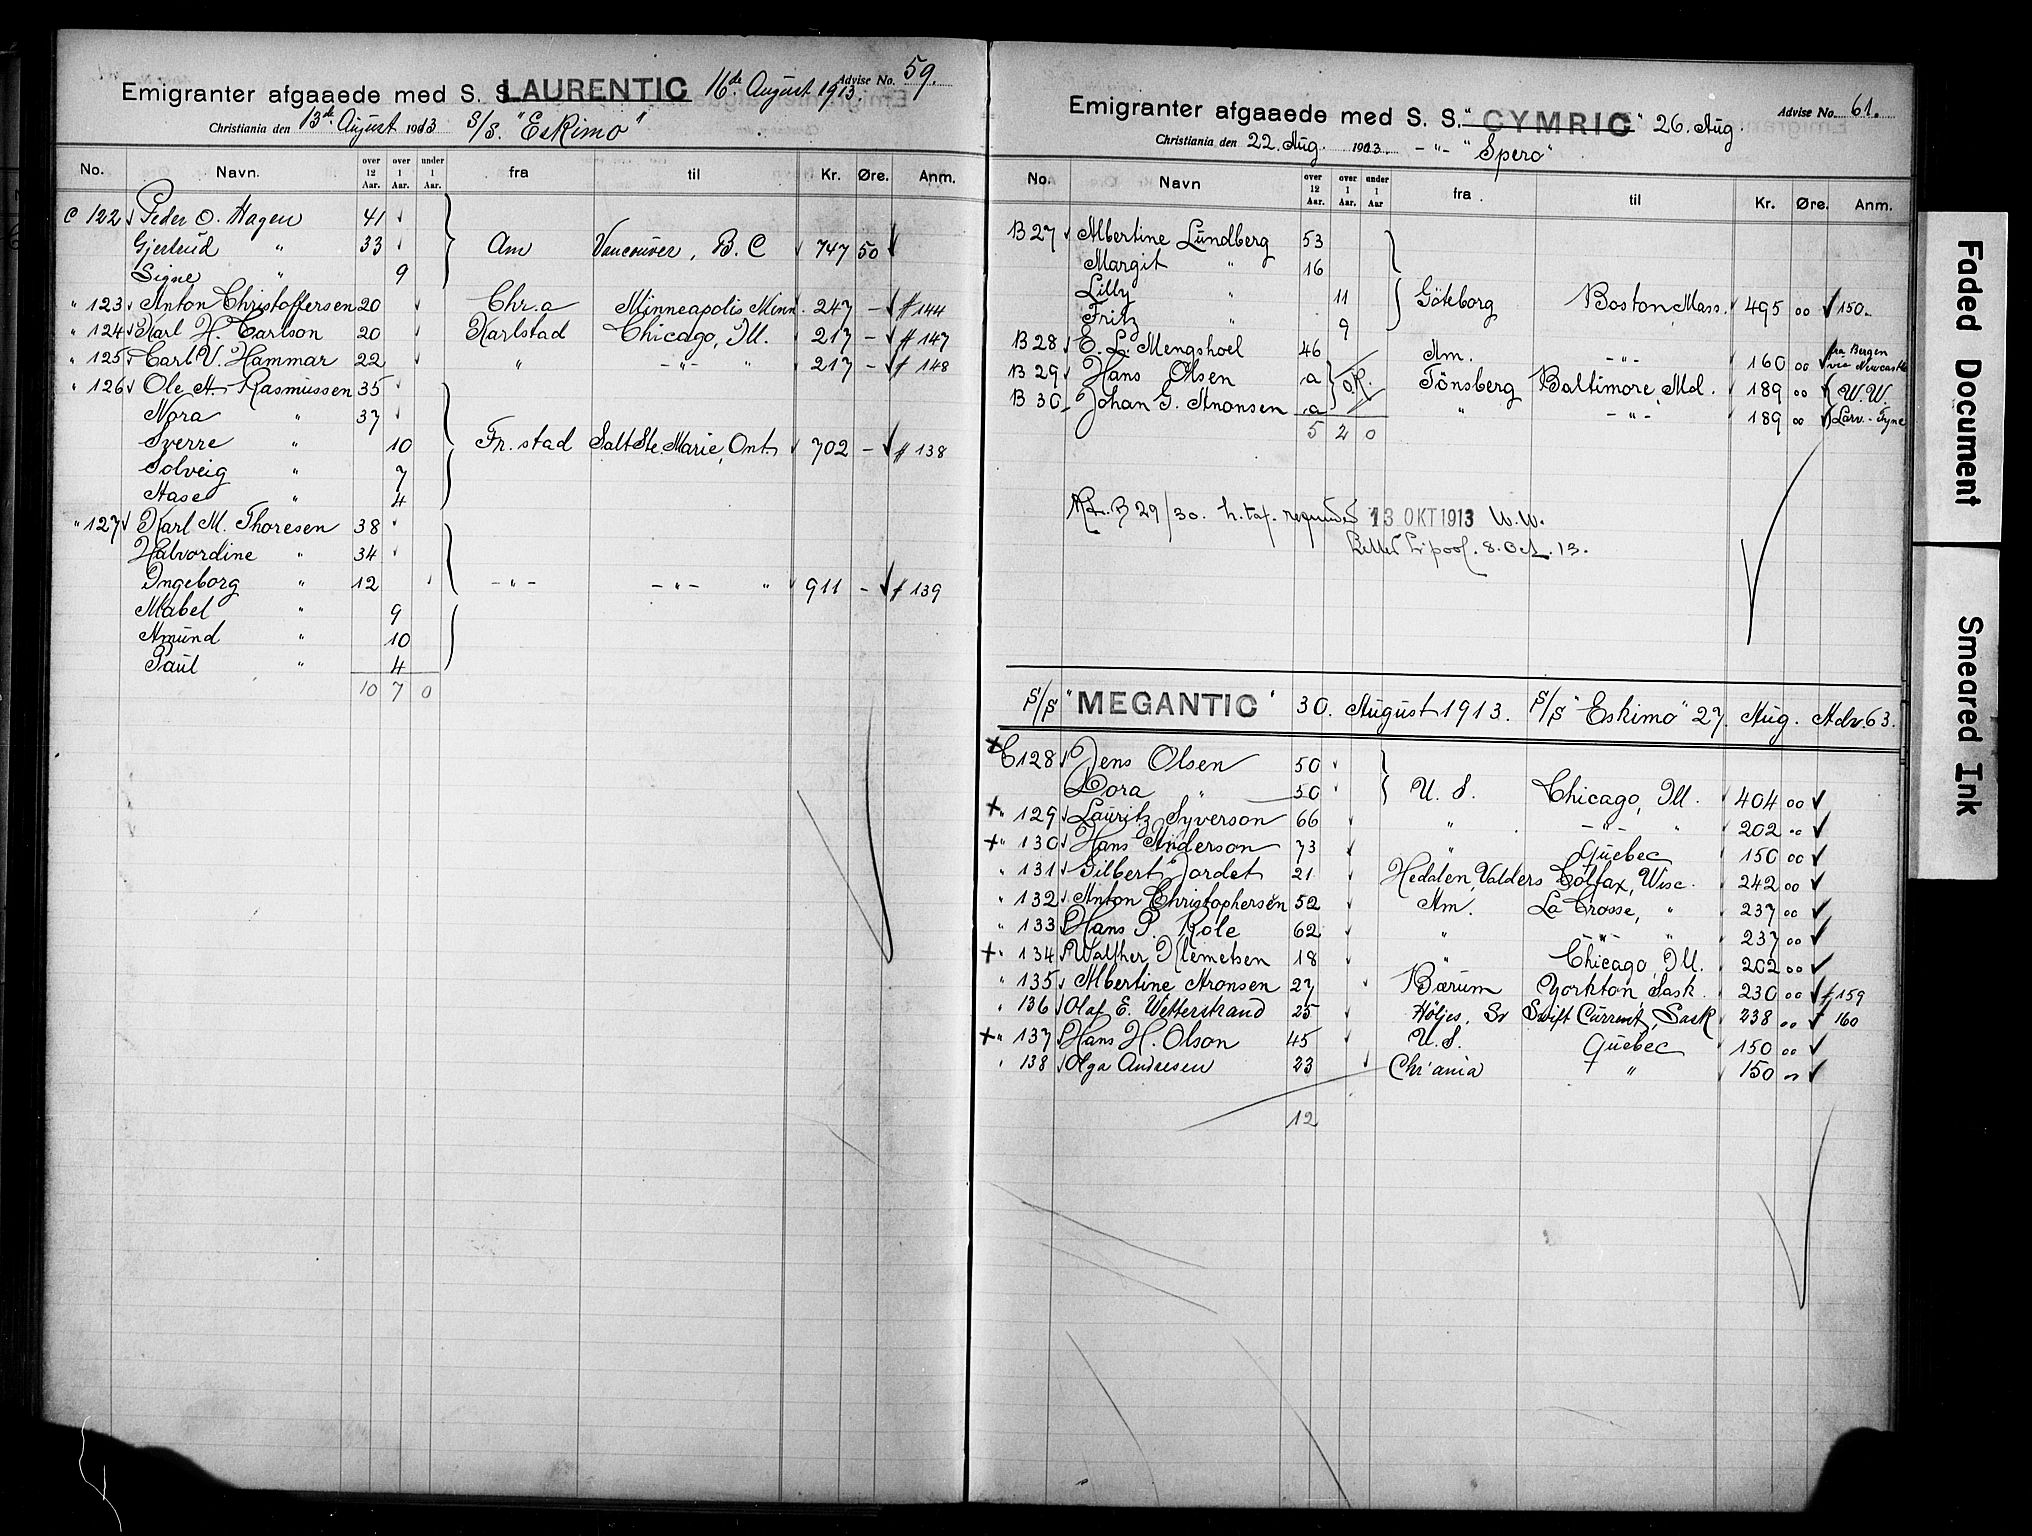 Emigranter afgaaede med S. S. LAURENTIC 16de August 1913. Advise No. 59.
Christiania den 13de August 1913 S/S. "Eskimo"
No. Navn. over 12 Aar. over 1 Aar. under 1 Aar. fra til Kr. Øre. Anm.
C 122 Peder O. Hagen 41
Gjertrud " 33 Am Vancouver, B. C 747 50
Signe " 9
" 123 Anton Christoffersen 20 Chr.a Minneapolis Minn. 247 - # 144
" 124 Karl H. Carlson 20 Karlstad Chicago, Ill. 217 - # 147
" 125 Carl V. Hammar 22 " -"- " 217 - # 148
" 126 Ole A. Rasmussen 35
Nora " 37
Sverre " 10 Fr.stad Salt Ste. Marie, Ont. 702 - # 138
Solveig " 7
Aase " 4
" 127 Karl M. Thoresen 38
Halvordine " 34
Ingeborg " 12 -"- -"- " 911 - # 139
Mabel " 9
Amund " 10
Paul " 4
10 7 0
Emigranter afgaaede med S. S. "CYMRIC" 26. Aug. Advise No. 61.
Christiania den 22. Aug. 1913. -"- "Spero"
No. Navn over 12 Aar. over 1 Aar. under 1 Aar fra. til Kr. Øre. Anm.
B 27 Albertine Lundberg 53
Margit " 16
Lilly " 11 Göteborg Boston Mass. 495 00 150.
Fritz " 9
B 28 E. L. Mengshoel 46 Am. -"- 160 00 fra Bergen via Newcastle
B 29 Hans Olsen a Tönsberg Baltimore, Md. 189 00 W.W.
B 30 Johan G. Aronsen a " -"- 189 00 Larv.-Tyne
5 2 0
B 29/30. 13 OKT 1913 W.W.
Letter L'pool. 8. Oct. 13.
S/S "MEGANTIC" 30. August 1913. S/S "Eskimo" 27. Aug. Adv. 63.
C 128 Jens Olsen 50
Dora " 50 U. S. Chicago, Ill. 404 00
" 129 Lauritz Syverson 66 " -"- " 202 00
" 130 Hans Anderson 73 " Quebec 150 00
" 131 Gilbert Jordet 21 Hedalen, Valders Colfax, Wisc. 242 00
" 132 Anton Christophersen 52 Am. La Crosse, " 237 00
" 133 Hans P. Role 62 " -"- " 237 00
" 134 Walther Klemetsen 18 " Chicago, Ill. 202 00
" 135 Albertine Aronsen 27 Bærum Yorkton, Sask. 230 00 # 159
" 136 Olaf E. Wetterstrand 25 Höljes, Sv Swift Current, Sask 238 00 # 160
" 137 Hans H. Olson 45 U. S. Quebec 150 00
" 138 Olga Andresen 23 Chr'ania " 150 00
12
Faded Document
Smeared Ink